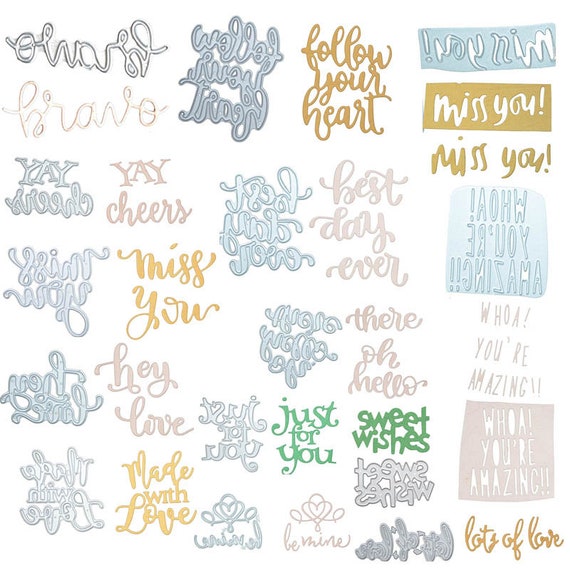 bravo
bravo
follow
your
heart
follow
your
heart
miss you!
miss you!
miss you!
YAY
cheers
YAY
cheers
best
day
ever
best
day
ever
WHOA!
YOU'RE
AMAZING!!
miss
you
miss
you
WHOA!
YOU'RE
AMAZING!!
there
oh
hello
there
oh
hello
hey
love
hey
love
just
for
you
just
for
you
sweet
wishes
sweet
wishes
WHOA!
YOU'RE
AMAZING!!
Made
with
Love
Made
with
Love
be mine
be mine
lots of love
lots of love